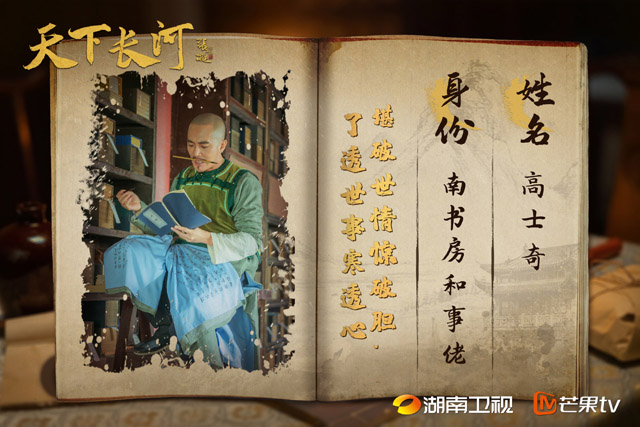 天下长河
姓名 高士奇
身份 南书房和事佬
堪破世情惊破胆，
了透世事寒透心
湖南卫视 芒果tv